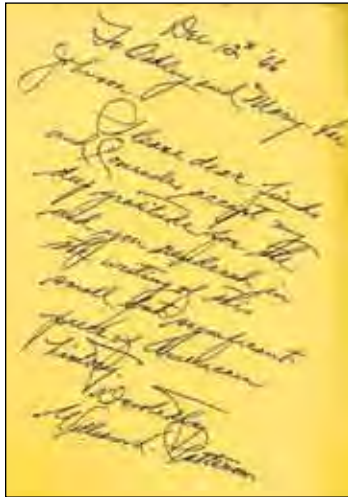 Dec 12th '66
To Oakley and Mary Lea
Johnson
Please dear friends
and Comrades accept my
deep gratitude for the
role you rendered in
the writing of this
small but significant
piece of American
history.
Devotedly
William L. Patterson